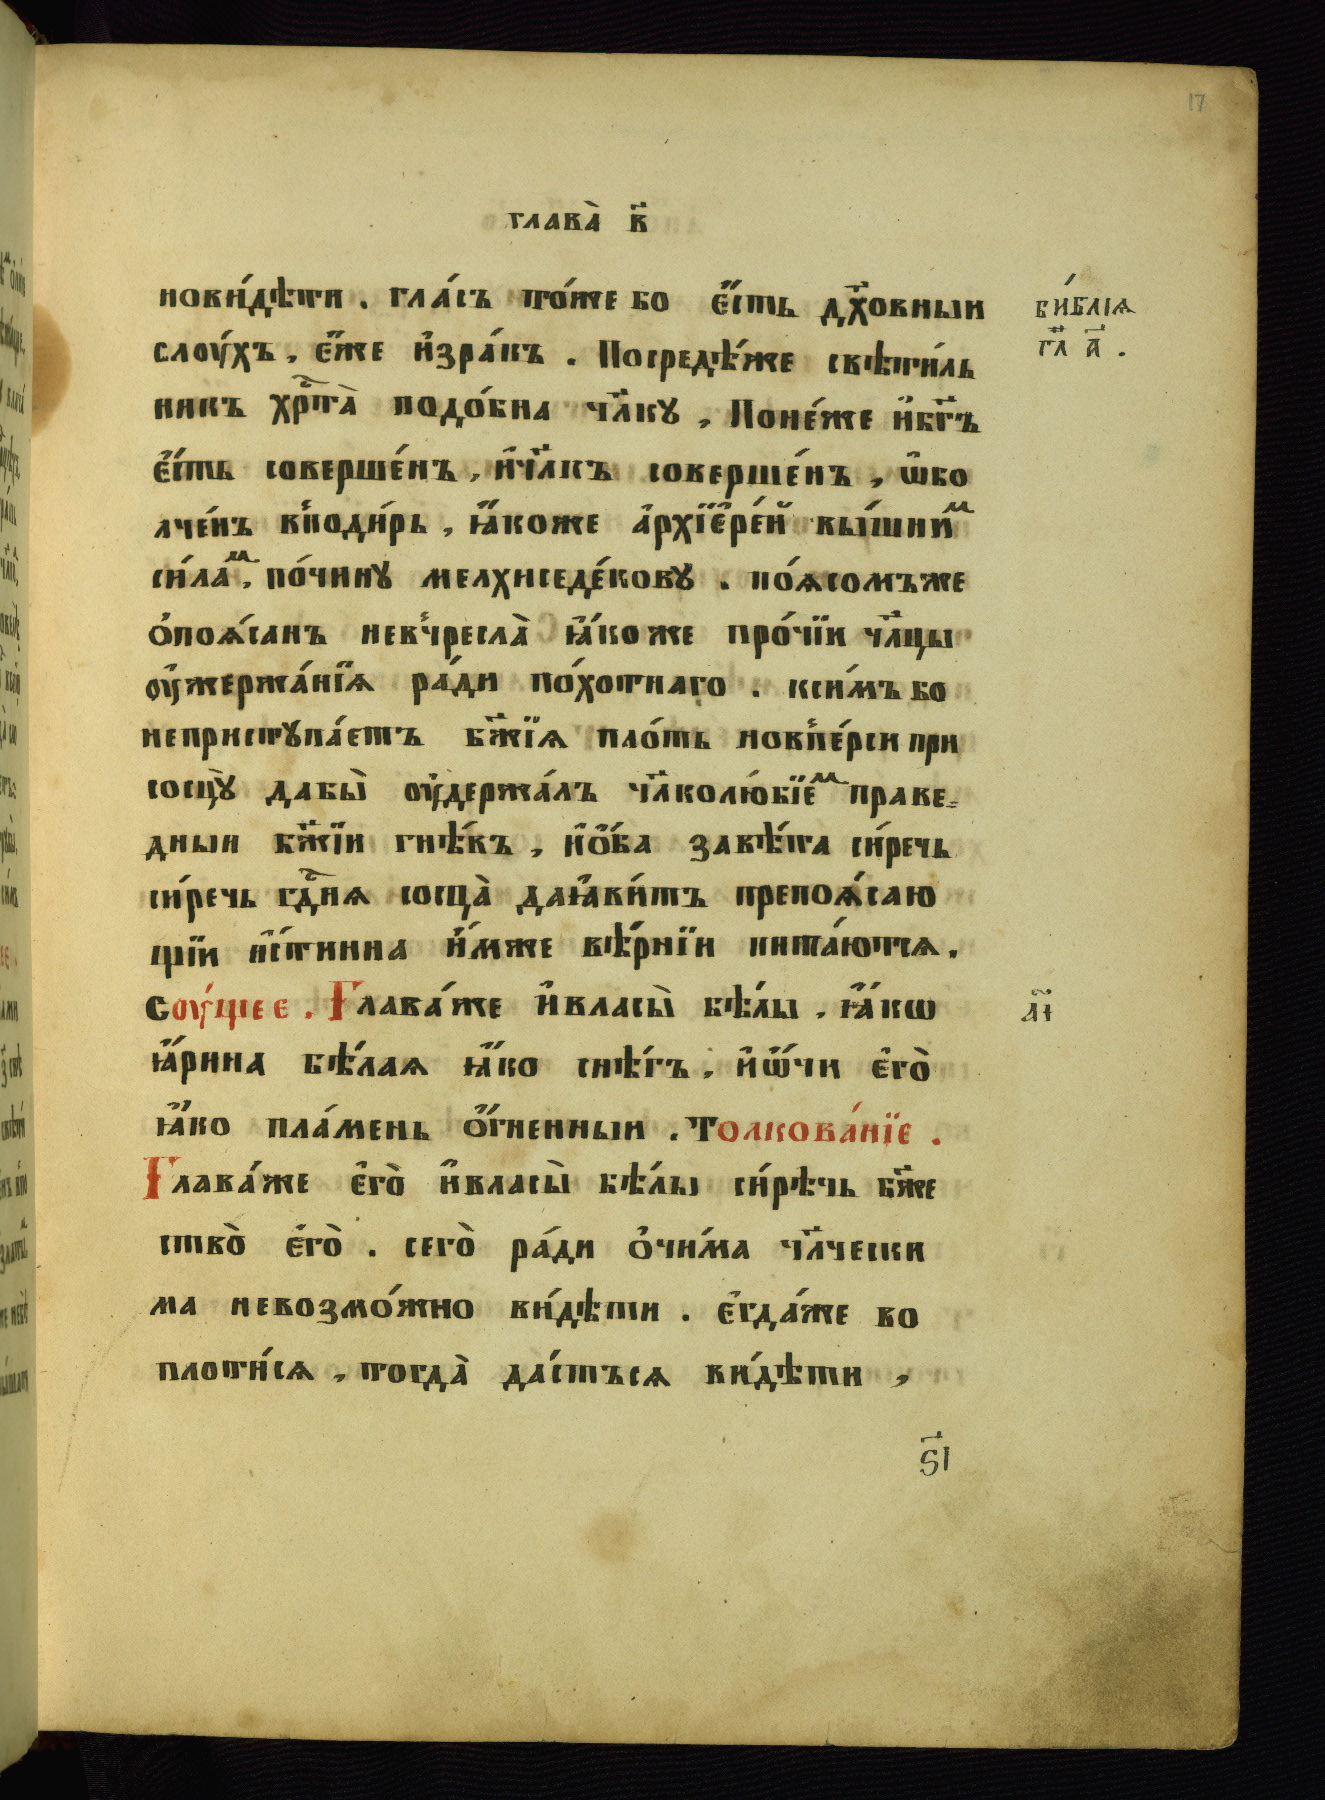 17
глава̀ в҃
нови́дѣти . гла́съ то́же бо є҆́сть дх҃овныи
слоу́хъ , є҆́же и҆зра́къ . Посредѣ́же свѣти́ль
никъ хрⷭ҇та̀ подо́бна чл҃ку , Поне́же и҆бг҃ъ
є҆́сть соверше́нъ , и҆чл҃къ соверше́нъ , ѡ҆бо
лче́нъ в̾поди́рь , ꙗ҆́коже а҆рхїєре́й вы́шниⷨ
си́лаⷨ , по́чину мелхиседе́кову . по́ѧсомъже
о҆поѧ́санъ нев̾чресла̀ ꙗ҆́коже про́чїи чл҃цы
оу҆жержа́нїѧ ра́ди по́хотнаго . ксим́ъ бо
неприступа́етъ бж҃їѧ пло́ть нов̾пе́рси при
сосцꙋ̀ дабы̀ оу҆держа́лъ чл҃колю́бїеⷨ праве
дныи бж҃їи гнѣ́въ , и҆ѻ҆́ба завѣ́та си́речь
си́речь гдⷭ҇нѧ сосца̀ даꙗ҆ви́тъ препоѧ́саю
щїи и҆́стинна и҆́мже вѣ́рнїи пита́ютсѧ .
Соу́щее . Глава́же и҆власы̀ бѣ́лы , ꙗ҆́кѡ
ꙗ҆́рина бѣ́лаѧ ꙗ҆́ко снѣ́гъ , и҆ѻ҆́чи є҆го̀
ꙗ҆́ко пла́мень ѻ҆́гненныи . Толкова́нїе .
Глава́же є҆го̀ и҆власы̀ бѣ́лы си́рѣчь бж҃е
ство̀ є҆го̀ . сего̀ ра́ди о҆чи́ма чл҃чески
ма невозмо́жно ви́дѣти . є҆гда́же во
плоти́сѧ , тогда̀ да́стъсѧ ви́дѣти ,
ви́блїѧ
гл҃ а҃ .
д҃і
ѕ҃і